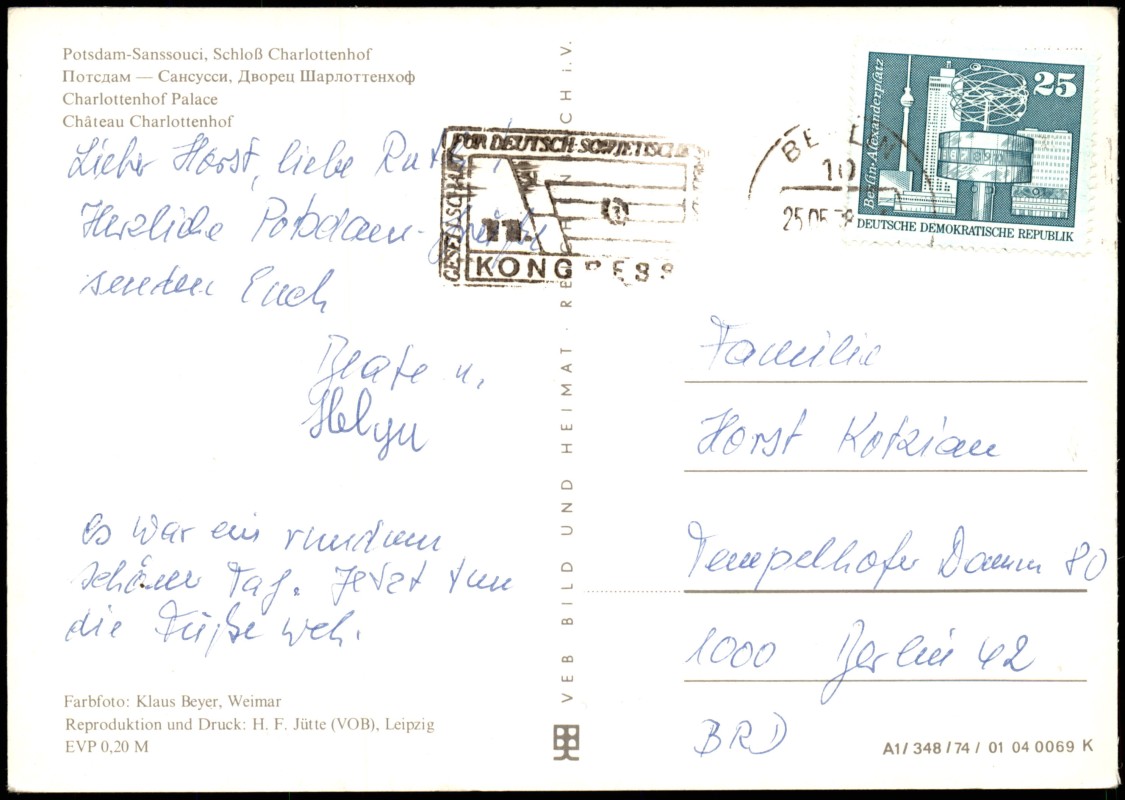 Potsdam-Sanssouci, Schloß Charlottenhof
Потсдам — Сансусси, Дворец Шарлоттенхоф
Charlottenhof Palace
Château Charlottenhof
Lieber Horst, liebe Ruth!
Herzliche Potsdam-Grüße
senden Euch
Beate u.
Helga
Es war ein rundum
schöner Tag. Jetzt tun
die Füße weh.
Farbfoto: Klaus Beyer, Weimar
Reproduktion und Druck: H. F. Jütte (VOB), Leipzig
EVP 0,20 M
VEB BILD UND HEIMAT · REICHENBACH i. V.
GESELLSCHAFT
FÜR DEUTSCH-SOWJETISCHE
11.
KONGRESS
BERLIN
10
25.05.78
Berlin-Alexanderplatz
25
DEUTSCHE DEMOKRATISCHE REPUBLIK
Familie
Horst Kotzian
Tempelhofer Damm 80
1000 Berlin 42
BRD
A1/348/74/ 01 04 0069 K